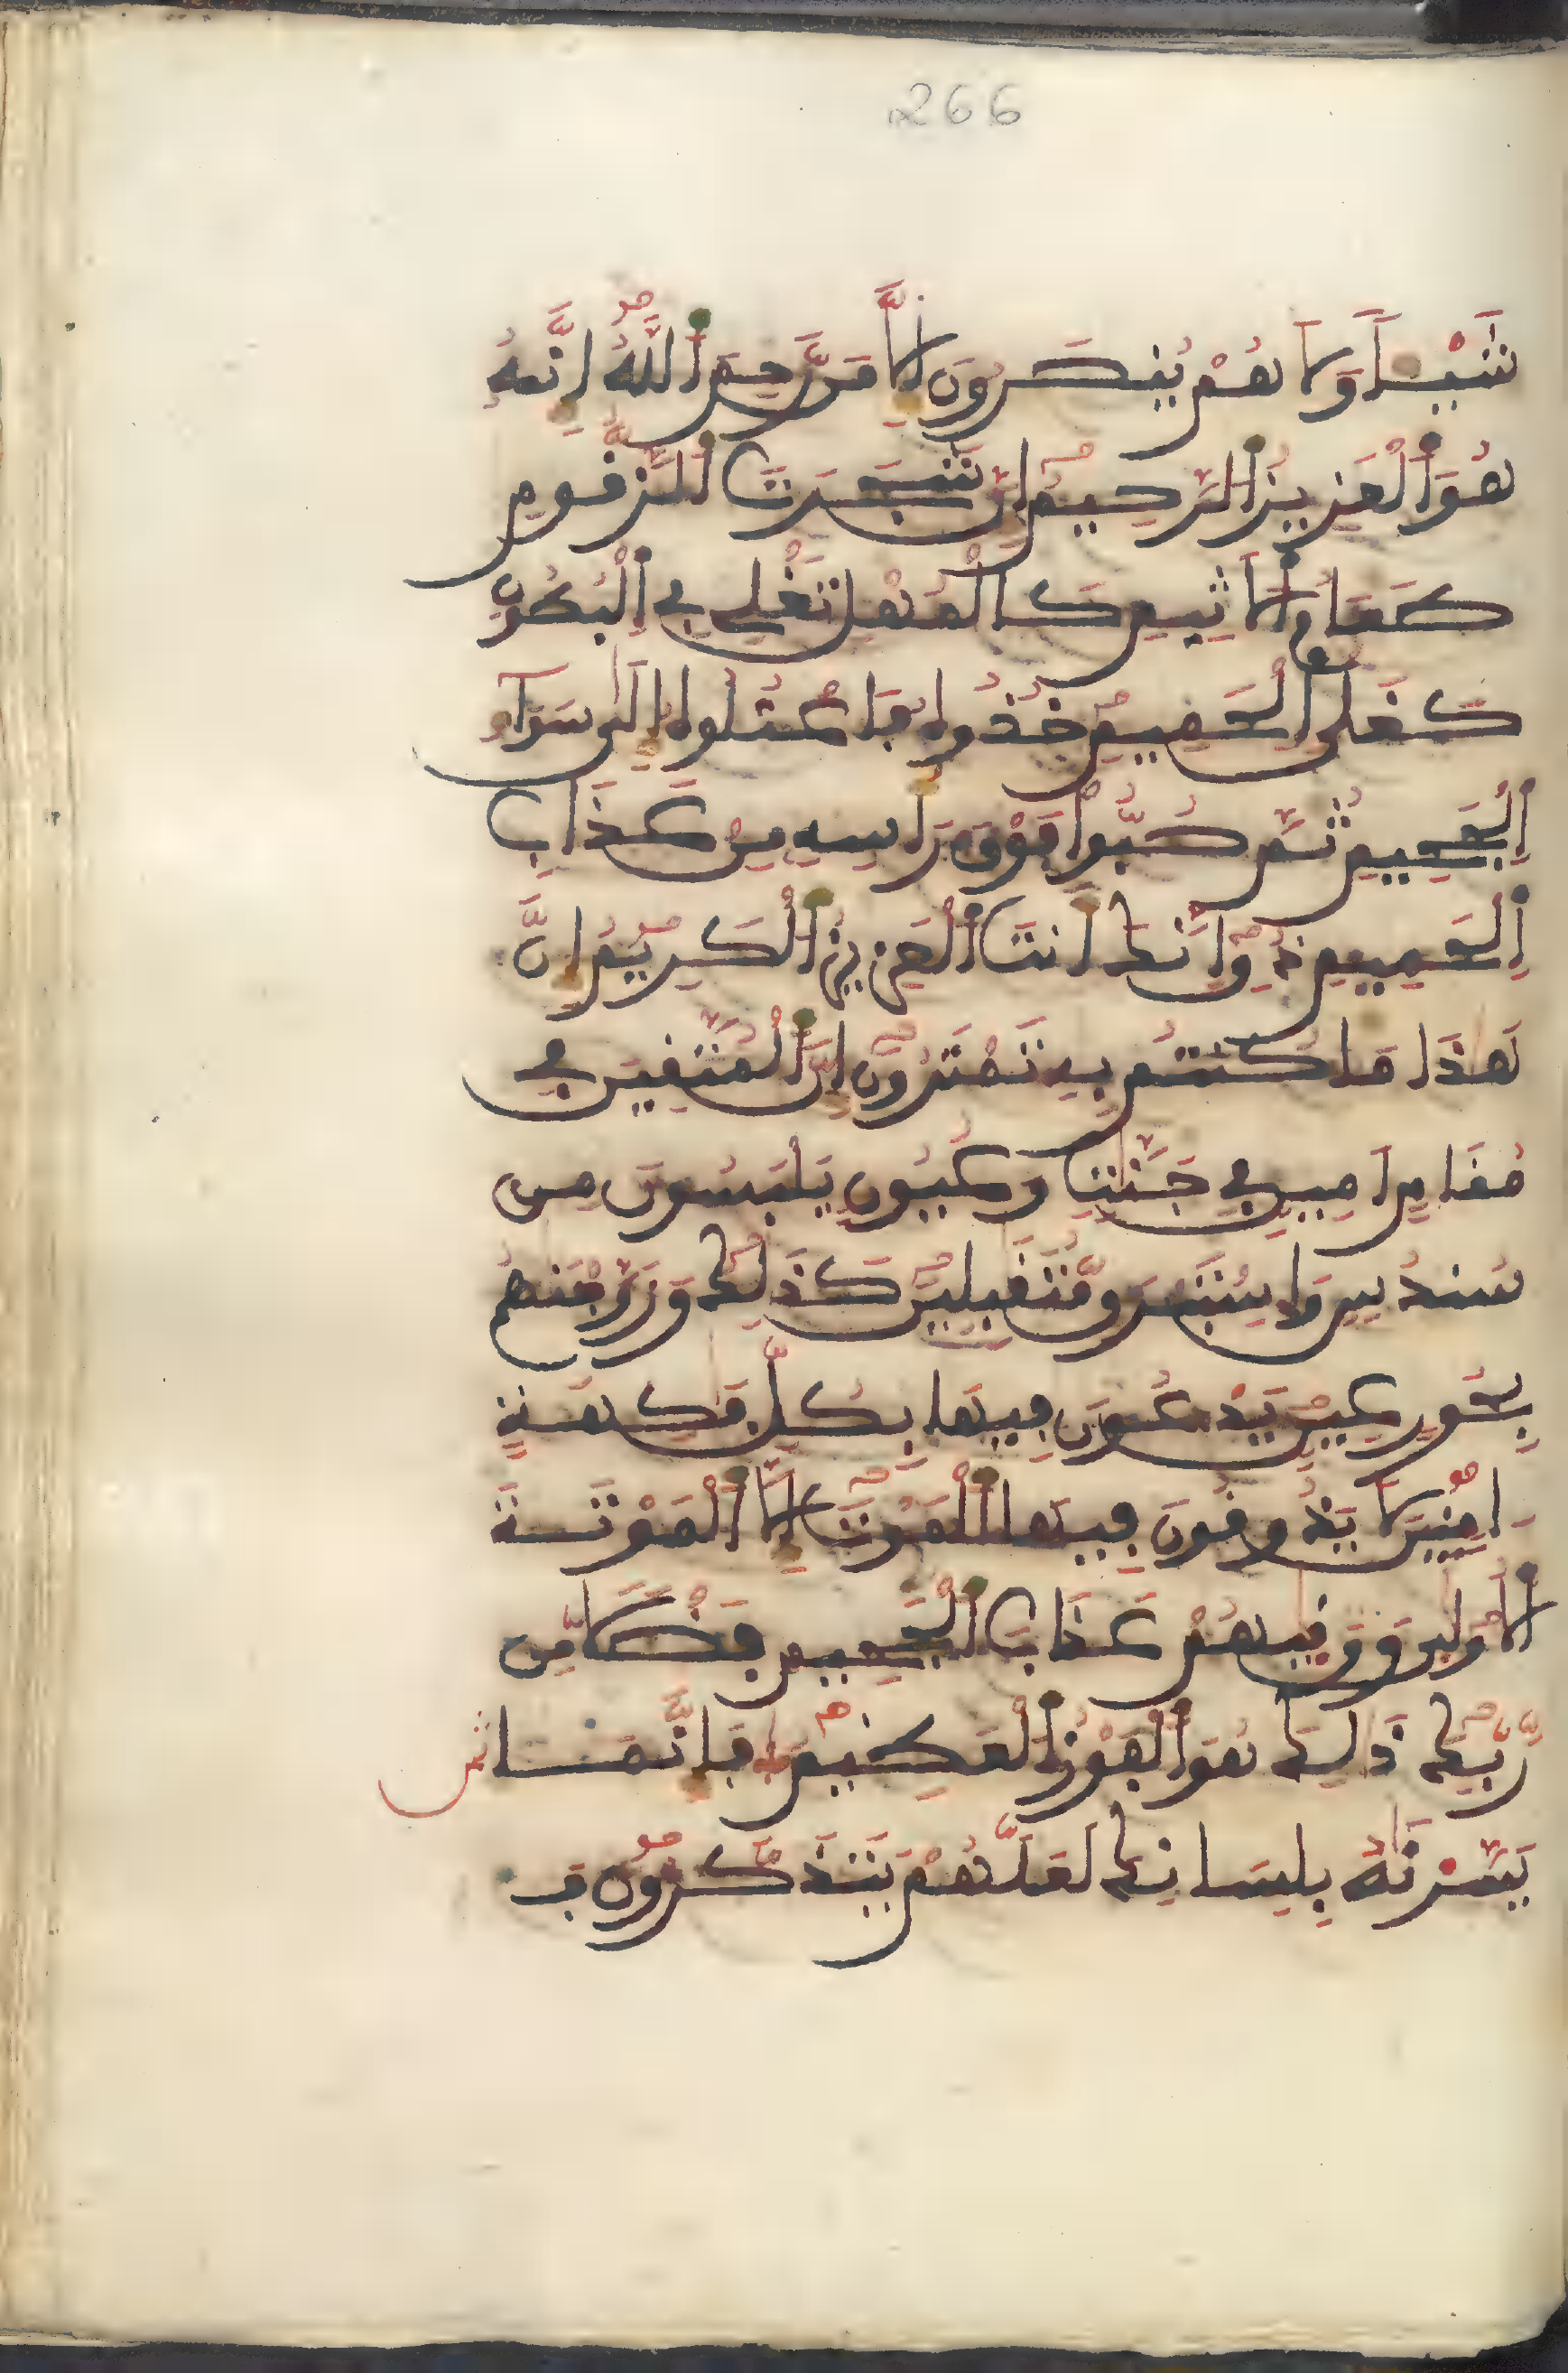 266
شَيْـًٔا وَلَا هُمْ يُنصَرُونَ إِلَّا مَن رَّحِمَ ٱللَّهُ إِنَّهُ
هُوَ ٱلْعَزِيزُ ٱلرَّحِيمُ إِنَّ شَجَرَتَ ٱلزَّقُّومِ
طَعَامُ ٱلَاثِيمِ كَالْمُهْلِ تَغْلِي فِي ٱلْبُطُونِ
كَغَلْيِ ٱلْحَمِيمِ خُذُوهُ فَاعْتُلُوهُ إِلَىٰ سَوَآءِ
ٱلْجَحِيمِ ثُمَّ صُبُّوا۟ فَوْقَ رَأْسِهِ مِنْ عَذَابِ
ٱلْحَمِيمِ ذُقِ اِنَّكَ أَنتَ ٱلْعَزِيزُ ٱلْكَرِيمُ إِنَّ
هَٰذَا مَا كُنتُم بِهِ تَمْتَرُونَ إِنَّ ٱلْمُتَّقِينَ فِي
مُقَامٍ اَمِينٍ فِي جَنَّٰتٍ وَعُيُونٍ يَلْبَسُونَ مِن
سُندُسٍ وَإِسْتَبْرَقٍ مُّتَقَٰبِلِينَ كَذَٰلِكَ وَزَوَّجْنَٰهُم
بِحُورٍ عِينٍ يَدْعُونَ فِيهَا بِكُلِّ فَٰكِهَةٍ
ءَامِنِينَ لَا يَذُوقُونَ فِيهَا ٱلْمَوْتَ إِلَّا ٱلْمَوْتَةَ
ٱلُاولَىٰ وَوَقَىٰهُمْ عَذَابَ ٱلْجَحِيمِ فَضْلًا مِّن
رَّبِّكَ ذَٰلِكَ هُوَ ٱلْفَوْزُ ٱلْعَظِيمُ فَإِنَّمَا
يَسَّرْنَٰهُ بِلِسَانِكَ لَعَلَّهُمْ يَتَذَكَّرُونَ فَ